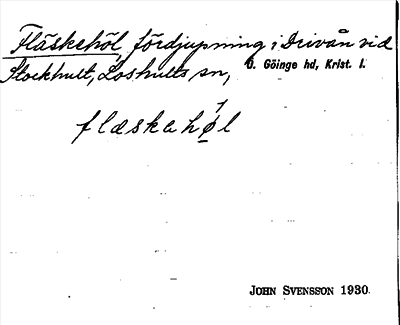 Fläskehöl, fördjupning i Drivån vid
Stockhult, Loshults sn, Ö. Göinge hd, Krist. l.
flæskahǿ̱l
JOHN SVENSSON 1930.